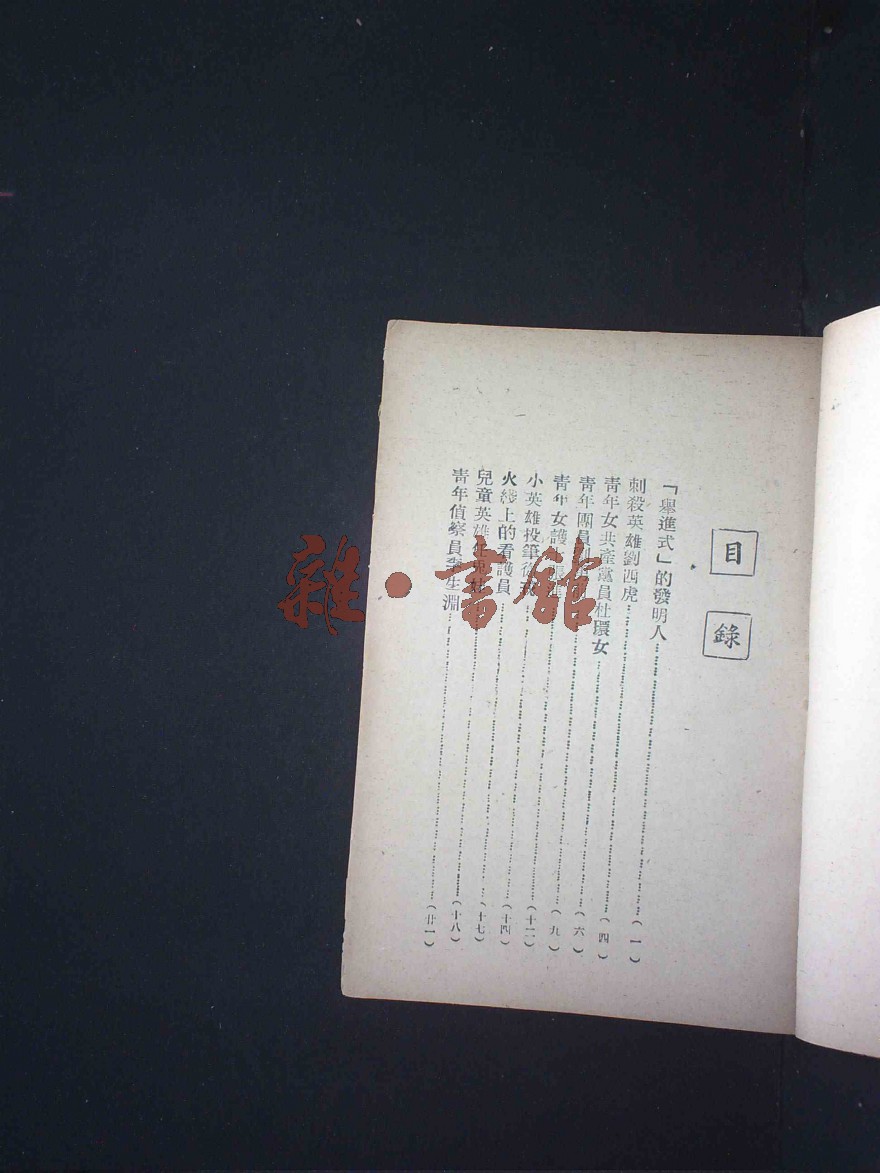 目錄
「舉進式」的發明人……(一)
刺殺英雄劉四虎……(四)
青年女共產黨員杜環女……(六)
青年團員……(九)
青年女護……(十二)
小英雄投筆從……(十四)
火线上的看護員……(十七)
兒童英雄……(十八)
青年偵察員李生淵……(廿一)
雜·書館